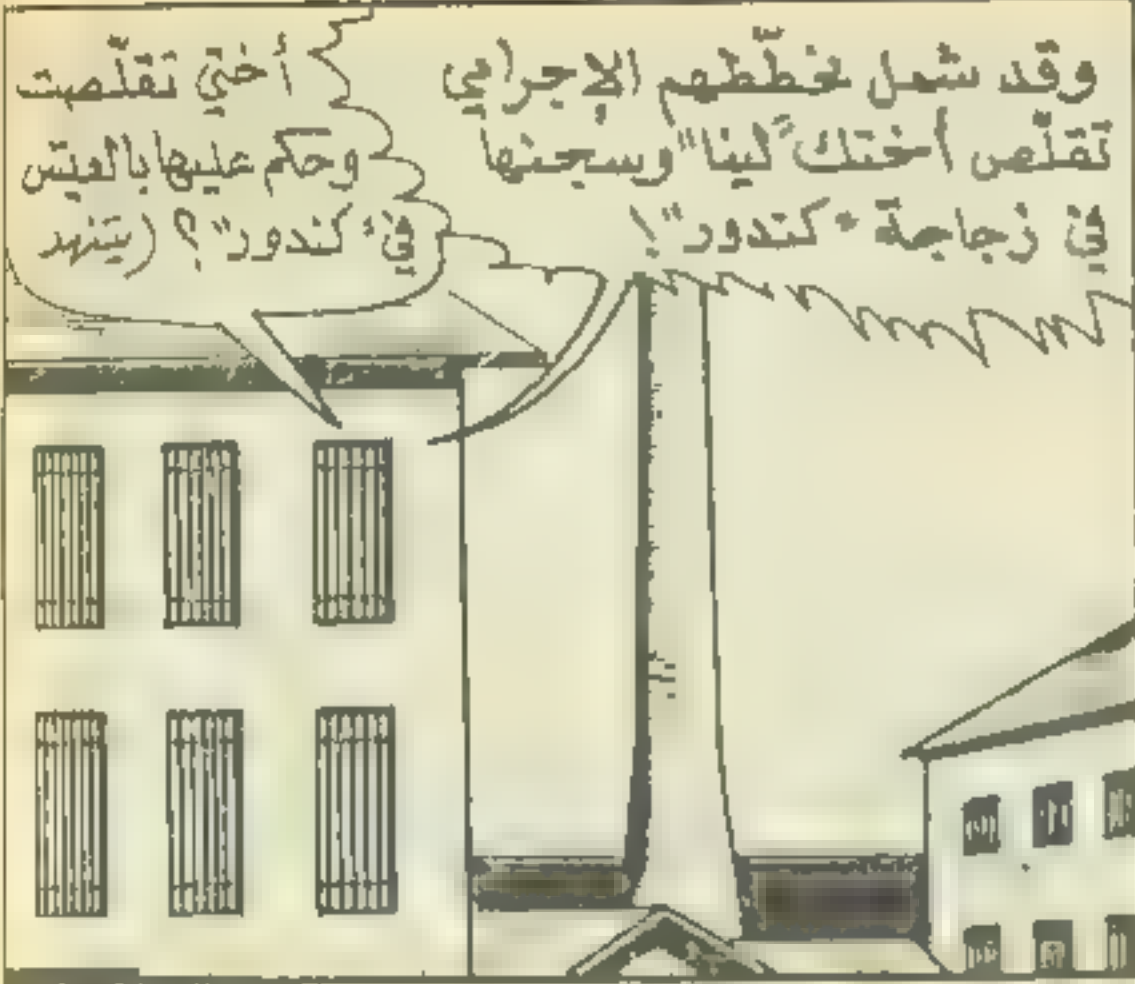 وقد شمل مخطّطهم الإجرامي
تقلّص أختك "لينا" وسجنها
في زجاجة "كندور"!
أختي تقلّصت
وحكم عليها بالعيش
في "كندور"؟ (يتنهد